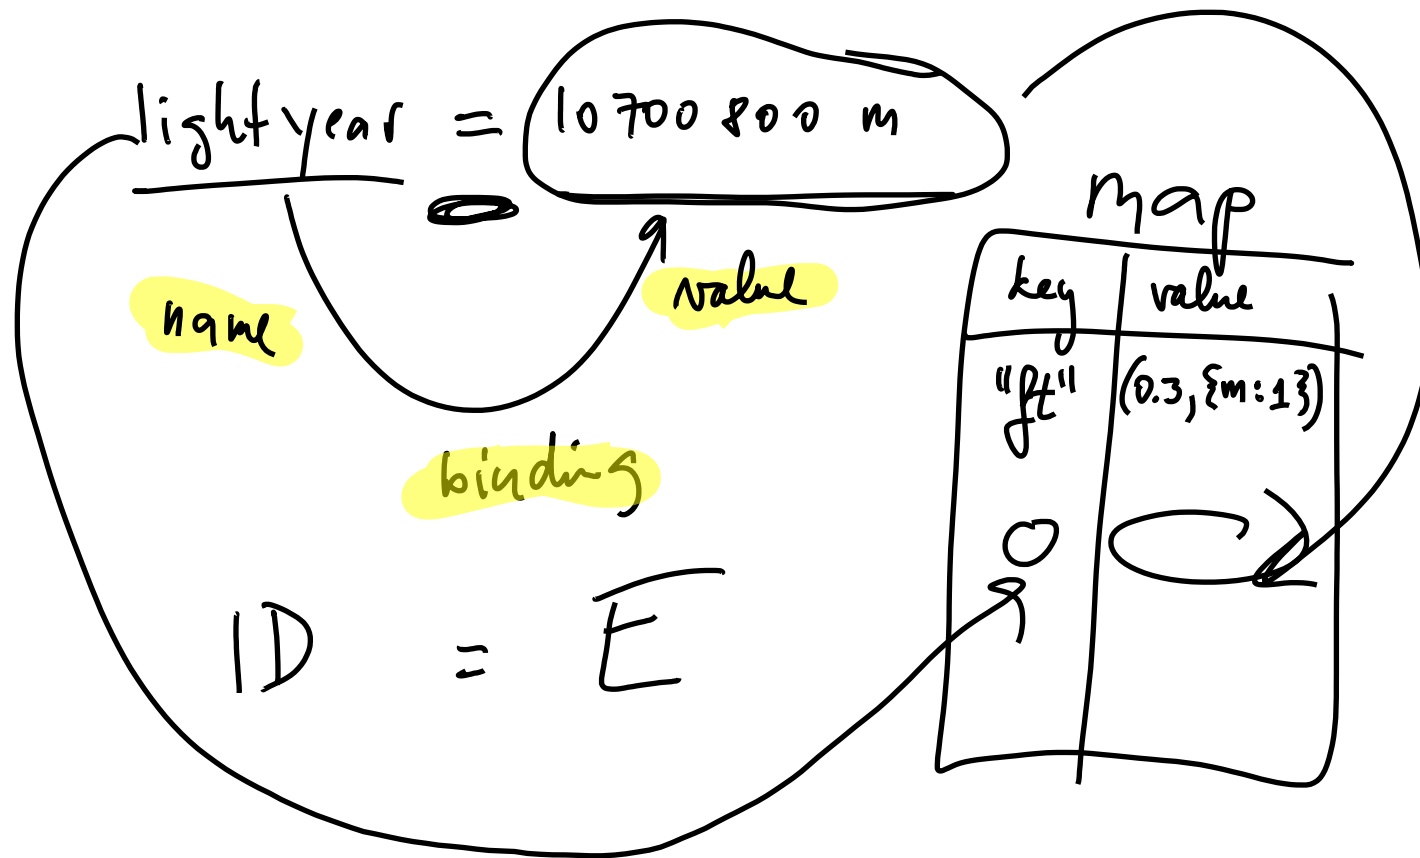 lightyear = 10700800 m
name
value
binding
ID = E
map
key value
"ft" (0.3, {m:1})